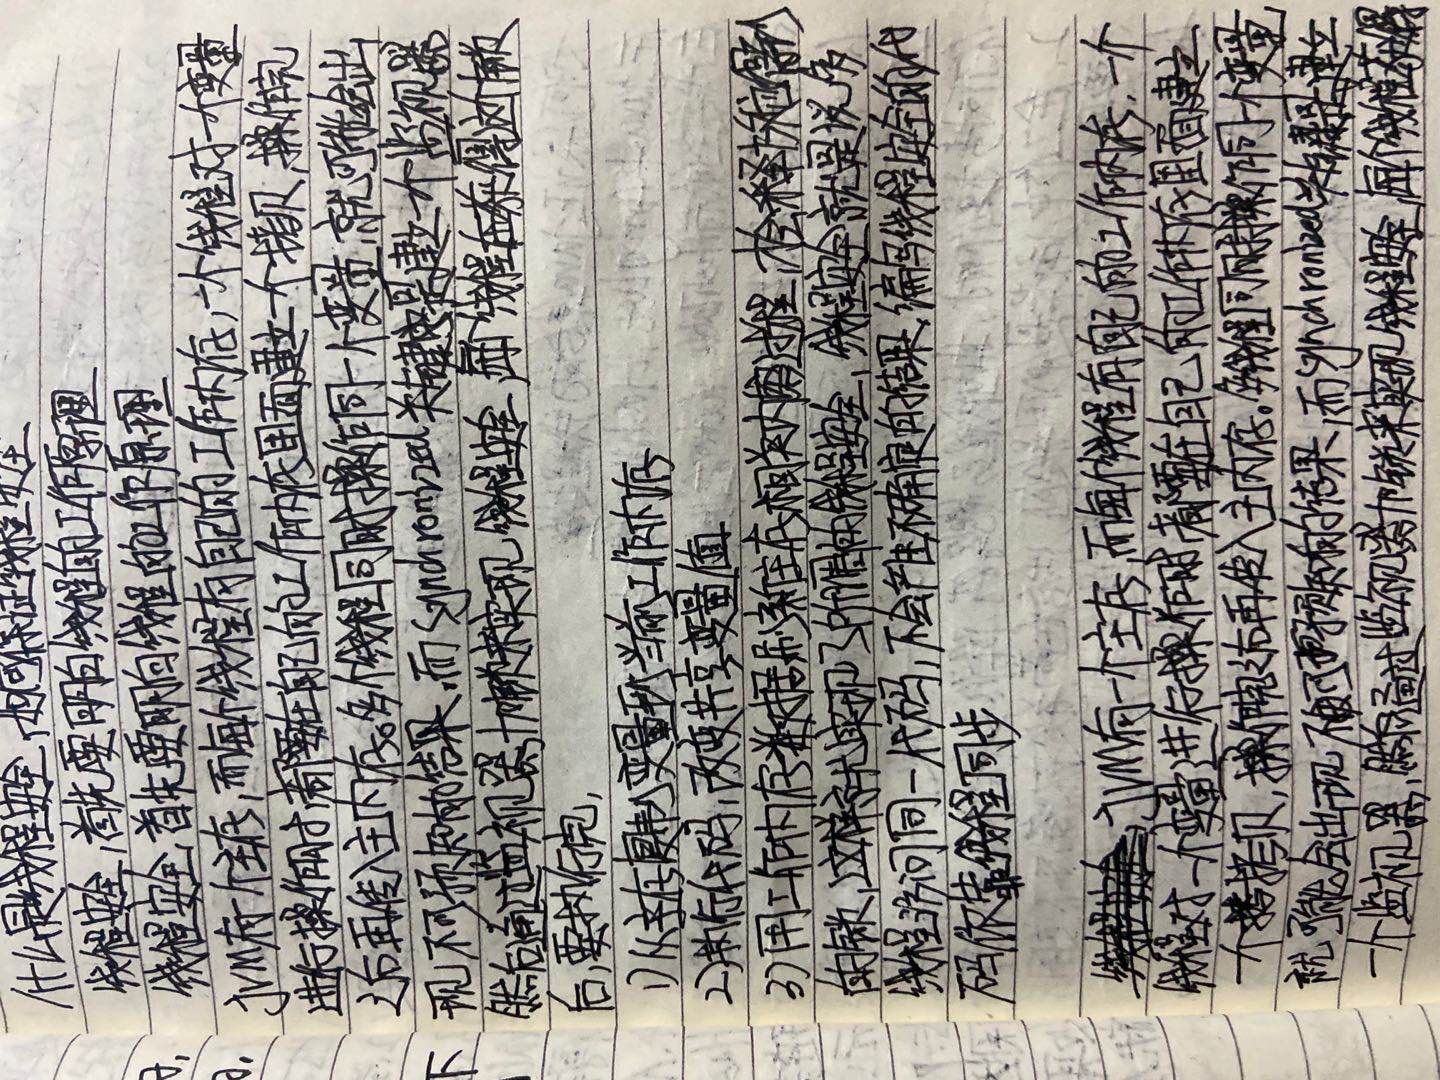 什么是线程安全,如何保证线程安全
线程安全,首先要明白线程的工作原理
线程安全,首先要明白线程的工作原理
JVM有一个主存,而每个线程有自己的工作内存,一个线程对一个变量
进行操作时,都要在自己的工作内存里面建立一个拷贝,操作完
之后再传入主内存。多个线程同时操作同一个变量,就可能会出
现不可预知的结果,而synchronized关键字是建立一个监视器
然后通过监视器加锁来实现线程安全,每个线程在获得这个锁
后,要执行完,
1)从主存复制变量到当前工作内存
2)执行代码,改变共享变量值
3)用工作内存数据刷新主存相关内容过程,才会释放得到
的锁,这样就实现了所谓的线程安全,线程安全就是说多
线程访问同一代码,不会产生不确定的结果,编写线程安全的代
码依靠线程同步
JVM有一个主存,而每个线程有自己的工作内存,一个
线程对一个变量进行操作时,都要在自己的工作内存里面建立
一个拷贝,操作完之后再传入主内存。多线程同时操作同一个变量,
就可能会出现不可预知的结果,而synchronized关键是建立
一个监视器,然后通过监视器加锁来实现线程安全,每个线程获得